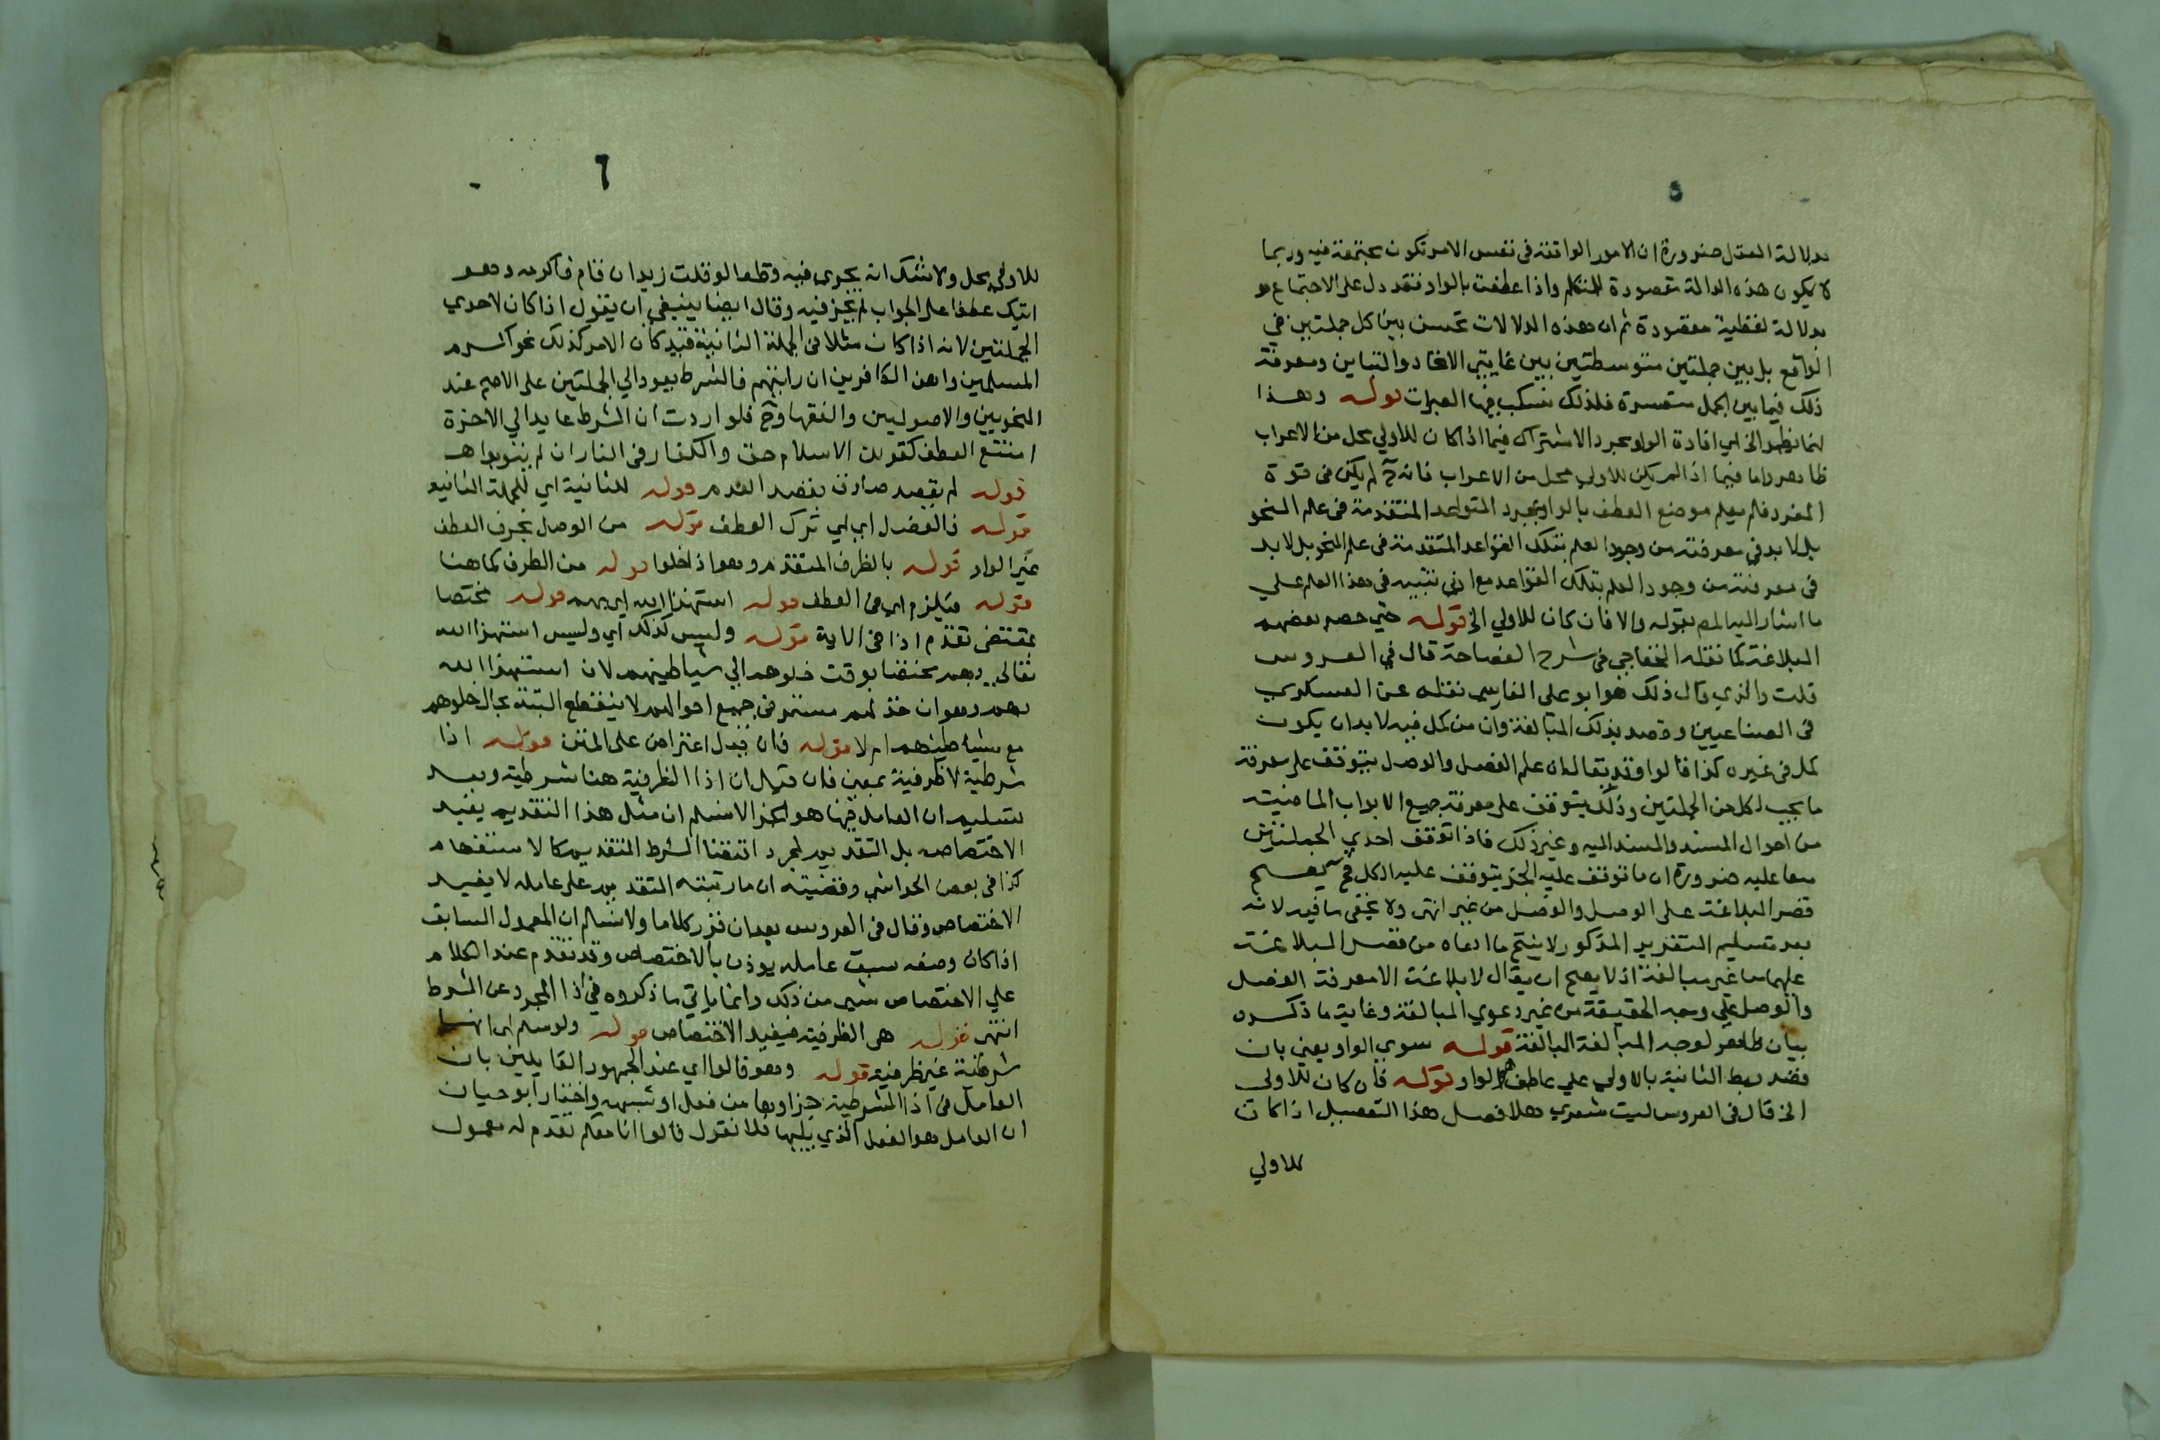 ٥
بدلالة العقل ضرورة ان الامور الواقعة في نفس الامر تكون مجتمعة فيه وربما
لا يكون هذه الدالة مقصودة للمتكلم واذا عطفت بالواو فقد دل على الاجتماع هو
بدلالة لفظية مقصودة ثم ان هذه الدلالات تحسن بين كل جملتين في
الواقع بل بين جملتين متوسطتين بين غايتي الاتحاد والتباين ومعرفة
ذلك فيما بين الجمل متعسرة فلذلك تسكب فيها العبرات قوله وهذا
انما يظهر الخ اي افادة الواو مجرد الاشتراك فيما اذا كان للاولي محل من الاعراب
ظاهر واما فيما اذا لم يكن للاولي محل من الاعراب فانه ح لم يكن في قوة
المفرد فلم يعلم موضع العطف بالواو بمجرد القواعد المتقدمة في علم النحو
بل لا بد في معرفته من وجود العلم بتلك القواعد المتقدمة في علم النحو بل لا بد
في معرفته من وجود العلم بتلك القواعد مع ادني تنبيه في هذا العلم علي
ما اشار اليه المص بقوله والا فان كان للاولي الخ قوله حتي حصر بعضهم
البلاغة كما نقله الخفاجي في شرح الفصاحة قال في العروس
قلت والذي قال ذلك هو ابو على الفارسي نقله عن العسكري
في الصناعيين وقصد بذلك المبالغة وان من كمل فيه لا بد ان يكون
كمل في غيره كذا قالوا وقد يقال ان علم الفصل والوصل يتوقف على معرفة
ما يجب لكل من الجملتين وذلك يتوقف على معرفة جميع الابواب الماضية
من احوال المسند والمسند اليه وغير ذلك فاذا توقف احدي الجملتين
معا عليه ضرورة ان ما توقف عليه الجز يتوقف عليه الكل فح يصح
قصر البلاغة على الوصل والفصل من غير انتهى ولا يخفى ما فيه لانه
بعد تسليم التقرير المذكور لا ينتج ما ادعاه من قصر البلاغة
عليهما من غير مبالغة اذ لا يصح ان يقال لا بلاغة الا معرفة الفصل
والوصل علي وجه الحقيقة من غير دعوي المبالغة وغاية ما ذكره
بيان ظاهر لوجه المبالغة البالغة قوله سوي الواو يعني بان
قصد ربط الثانية بالاولي علي عاطف الواو قوله فان كان للاولى
الخ قال في العروس ليت شعري هلا فصل هذا التفصيل اذا كان
للاولي
٦
للاولي محل ولا شك انه يجري فيه قطعا لو قلت زيد ان قام فاكرمه وهو
اتيك عطفا على الجواب لم يجز فيه وقال ايضا ينبغي ان يقول اذا كان لاحدي
الجملتين لانه اذا كان مثلا في الجملة الثانية قيد كان الامر كذلك نحو اكرم
المسلمين واهن الكافرين ان رايتهم فالشرط يعود الي الجملتين على الاصح عند
النحويين والاصوليين والفقها وح فلو اردت ان الشرط عايد الي الاخيرة
امتنع العطف كقولك الاسلام حق والكفار في النار ان لم يتوبوا اهـ
قوله لم يقصد صادق بقصد العدم قوله للثانية اي للجملة الثانية
قوله فالفصل اي اي ترك العطف قوله من الوصل بحرف العطف
غير الواو قوله بالظرف المتقدم وهو اذا خلوا قوله من الظرف كما هنا
قوله فيلزم اي من العطف قوله استهزا الله اي بهم قوله مختصا
بمقتضى تقدم اذا في الاية قوله وليس كذلك اي وليس استهزا الله
تعالى بهم مختصا بوقت خلوهم الي شياطينهم لان استهزا الله
بهم وهو ان خذلهم مستمر في جميع احوالهم لا ينقطع البتة بحال خلوهم
مع شياطينهم ام لا قوله فان قيل اعتراض على المتن قوله اذا
شرطية لا ظرفية بمعني فان قيل ان اذا الظرفية هنا شرطية وبعد
تسليم ان العامل فيها هو الجزا لا نسلم ان مثل هذا التقديم يفيد
الاختصاص بل التقديم لمجرد اتفقنا الشرط المتقدم كالاستفهام
كذا في بعض الحواشي وقضيته ان ما رتبته التقديم على عامله لا يفيد
الاختصاص وقال في العروس بعد ان قرر كلاما ولا نسلم ان المعمول السابق
اذا كان وصفه سبق عامله يوذن بالاختصاص وقد تقدم عند الكلام
علي الاختصاص شي من ذلك وانما ياتي ما ذكروه في اذا المجرد عن الشرط
انتهى قوله هي الظرفية فيفيد الاختصاص قوله ولو سلم اي انها
شرطية غير ظرفية قوله وهو قالوا اي عند الجمهور القايلين بان
العامل في اذا الشرطية جزاوها من فعل او شبهه واختار ابو حيان
ان العامل هو الفعل الذي يليها فلا نقول قالوا انا معكم تقدم له معمول